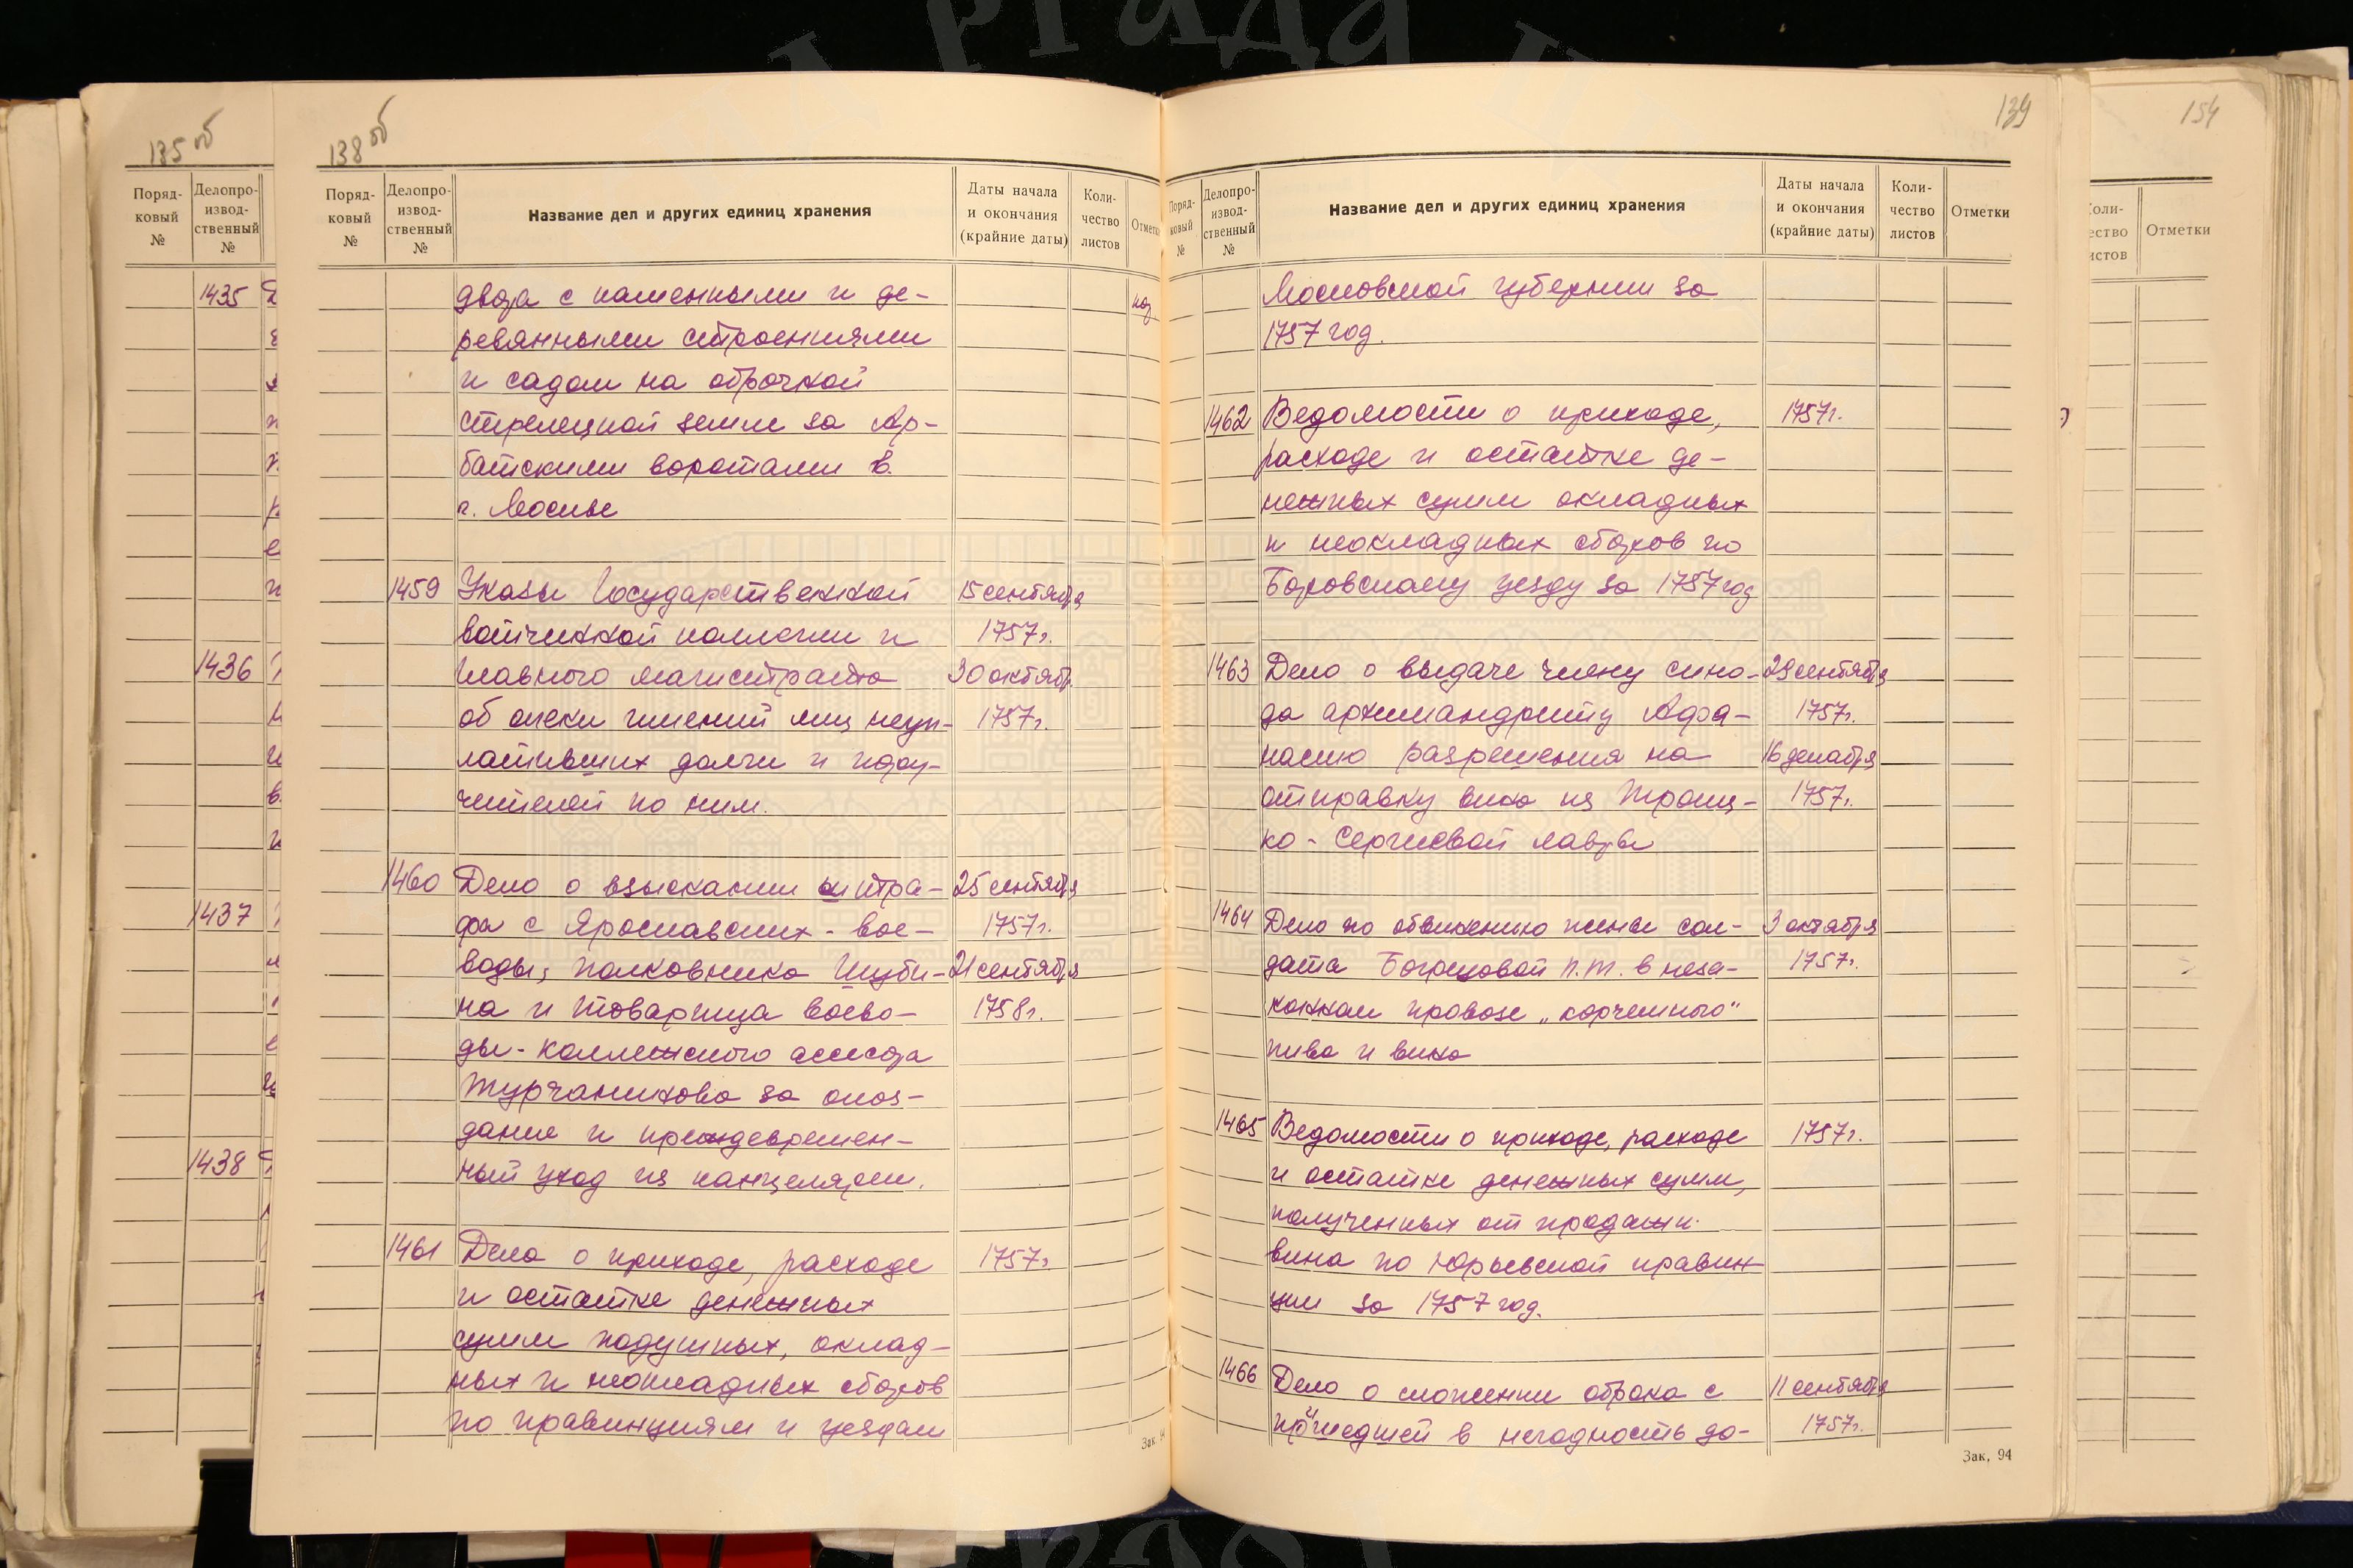 135 об
Поряд-
ковый
№
Делопро-
извод-
ственный
№
1435
1436
1437
1438
138 об
Поряд-
ковый
№
Делопро-
извод-
ственный
№
Название дел и других единиц хранения
Даты начала
и окончания
(крайние даты)
Коли-
чество
листов
двора с каменными и де-
ревянными строениями
и садом на оброчной
стрелецкой земли за Ар-
батскими воротами в
г. Москве
1459 Указы Государственной 15 сентября
вотчинной коллегии и 1757 г.
Главного магистрата 30 октябр.
об опеки имений лиц неуп- 1757 г.
лативших долги и пору-
чителей по ним.
1460 Дело о взыскании штра- 25 сентября
фа с Ярославских - вое- 1757 г.
воды, полковника Шуби- 21 сентября
на и товарища воево- 1758 г.
ды - коллежского ассесора
Турчанинова за опоз-
дание и преждевремен-
ный уход из канцелярии.
1461 Дела о приходе, расходе 1757 г.
и остатке денежных
сумм подушных, оклад-
ных и неокладных сборов
по провинциям и уездам
139
Поряд-
ковый
№
Делопро-
извод-
ственный
№
Название дел и других единиц хранения
Даты начала
и окончания
(крайние даты)
Коли-
чество
листов
Отметки
Московской губернии за
1757 год.
1462 Ведомости о приходе, 1757 г.
расходе и остатке де-
нежных сумм окладных
и неокладных сборов по
Боровскому уезду за 1757 год
1463 Дело о выдаче члену сино- 29 сентября
да архимандриту Афа- 1757 г.
насию разрешения на 16 декабря
отправку вина из Троиц- 1757 г.
ко - Сергиевой лавры
1464 Дело по обвинению жены сол- 3 октября
дата П.Т. в неза- 1757 г.
конном провозе „корчемного“
пива и вина
1465 Ведомости о приходе, расходе 1757 г.
и остатке денежных сумм,
полученных от продажи
вина по Юрьевской провин-
ции за 1757 год.
1466 Дело о сложении оброка с 11 сентября
пришедшей в негодность до- 1757 г.
Зак. 94
154
Отметки